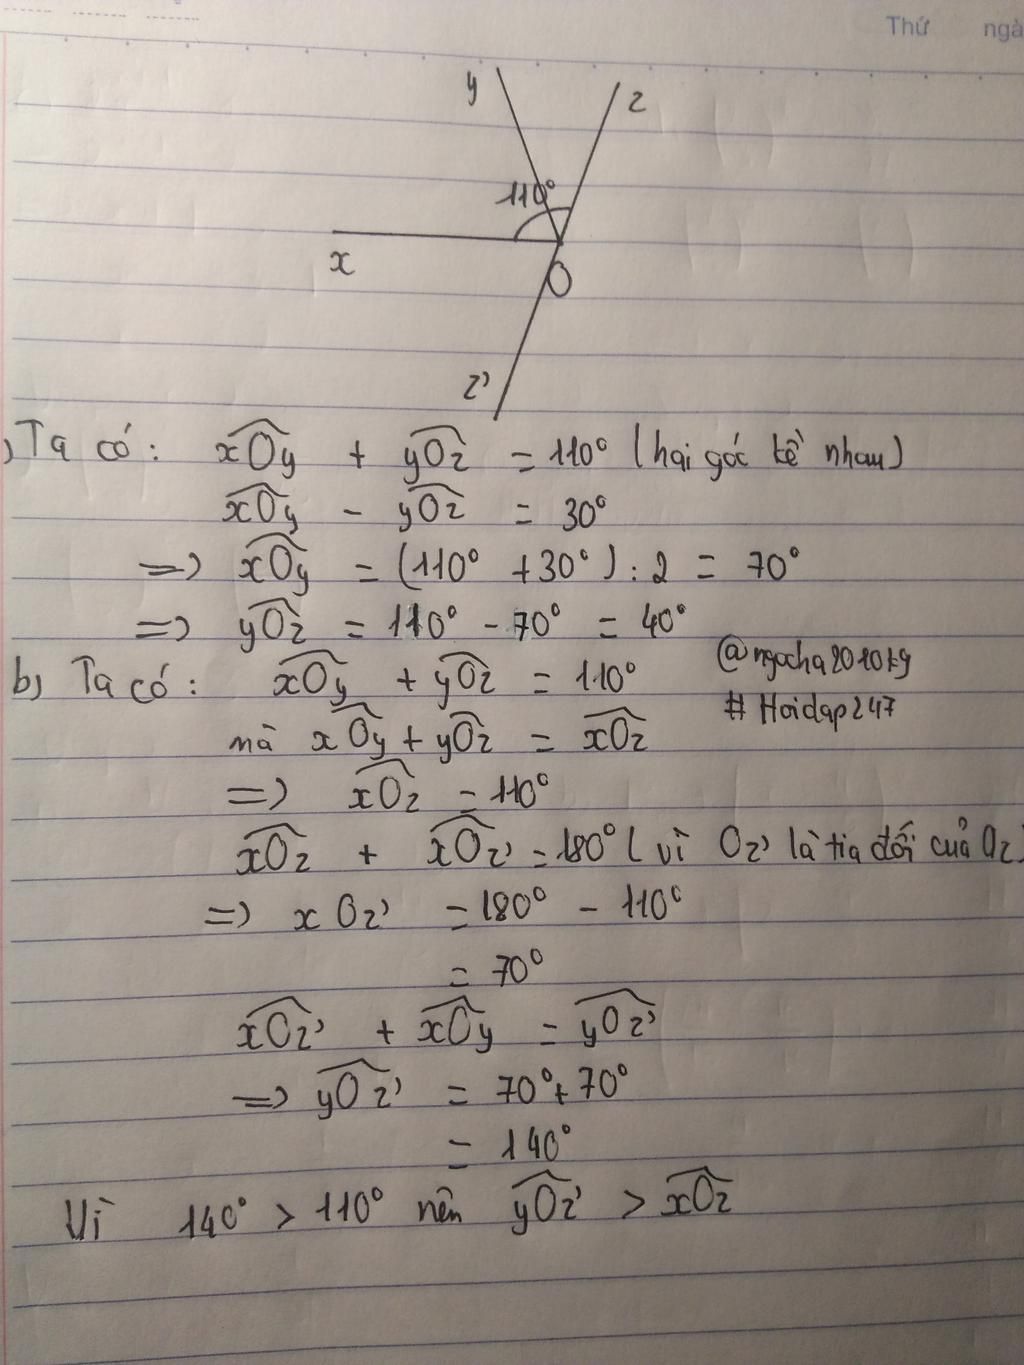 Thứ ngà
y
z
110°
x
O
z'
) Ta có: xOy + yOz = 110° (hai góc kề nhau)
xOy - yOz = 30°
=> xOy = (110° + 30°) : 2 = 70°
=> yOz = 110° - 70° = 40°
@ngocha2010kg
b) Ta có: xOy + yOz = 110°
# Hoidap247
mà xOy + yOz = xOz
=> xOz = 110°
xOz + xOz' = 180° ( vì Oz' là tia đối của Oz)
=> xOz' = 180° - 110°
= 70°
xOz' + xOy = yOz'
=> yOz' = 70° + 70°
= 140°
Vì 140° > 110° nên yOz' > xOz